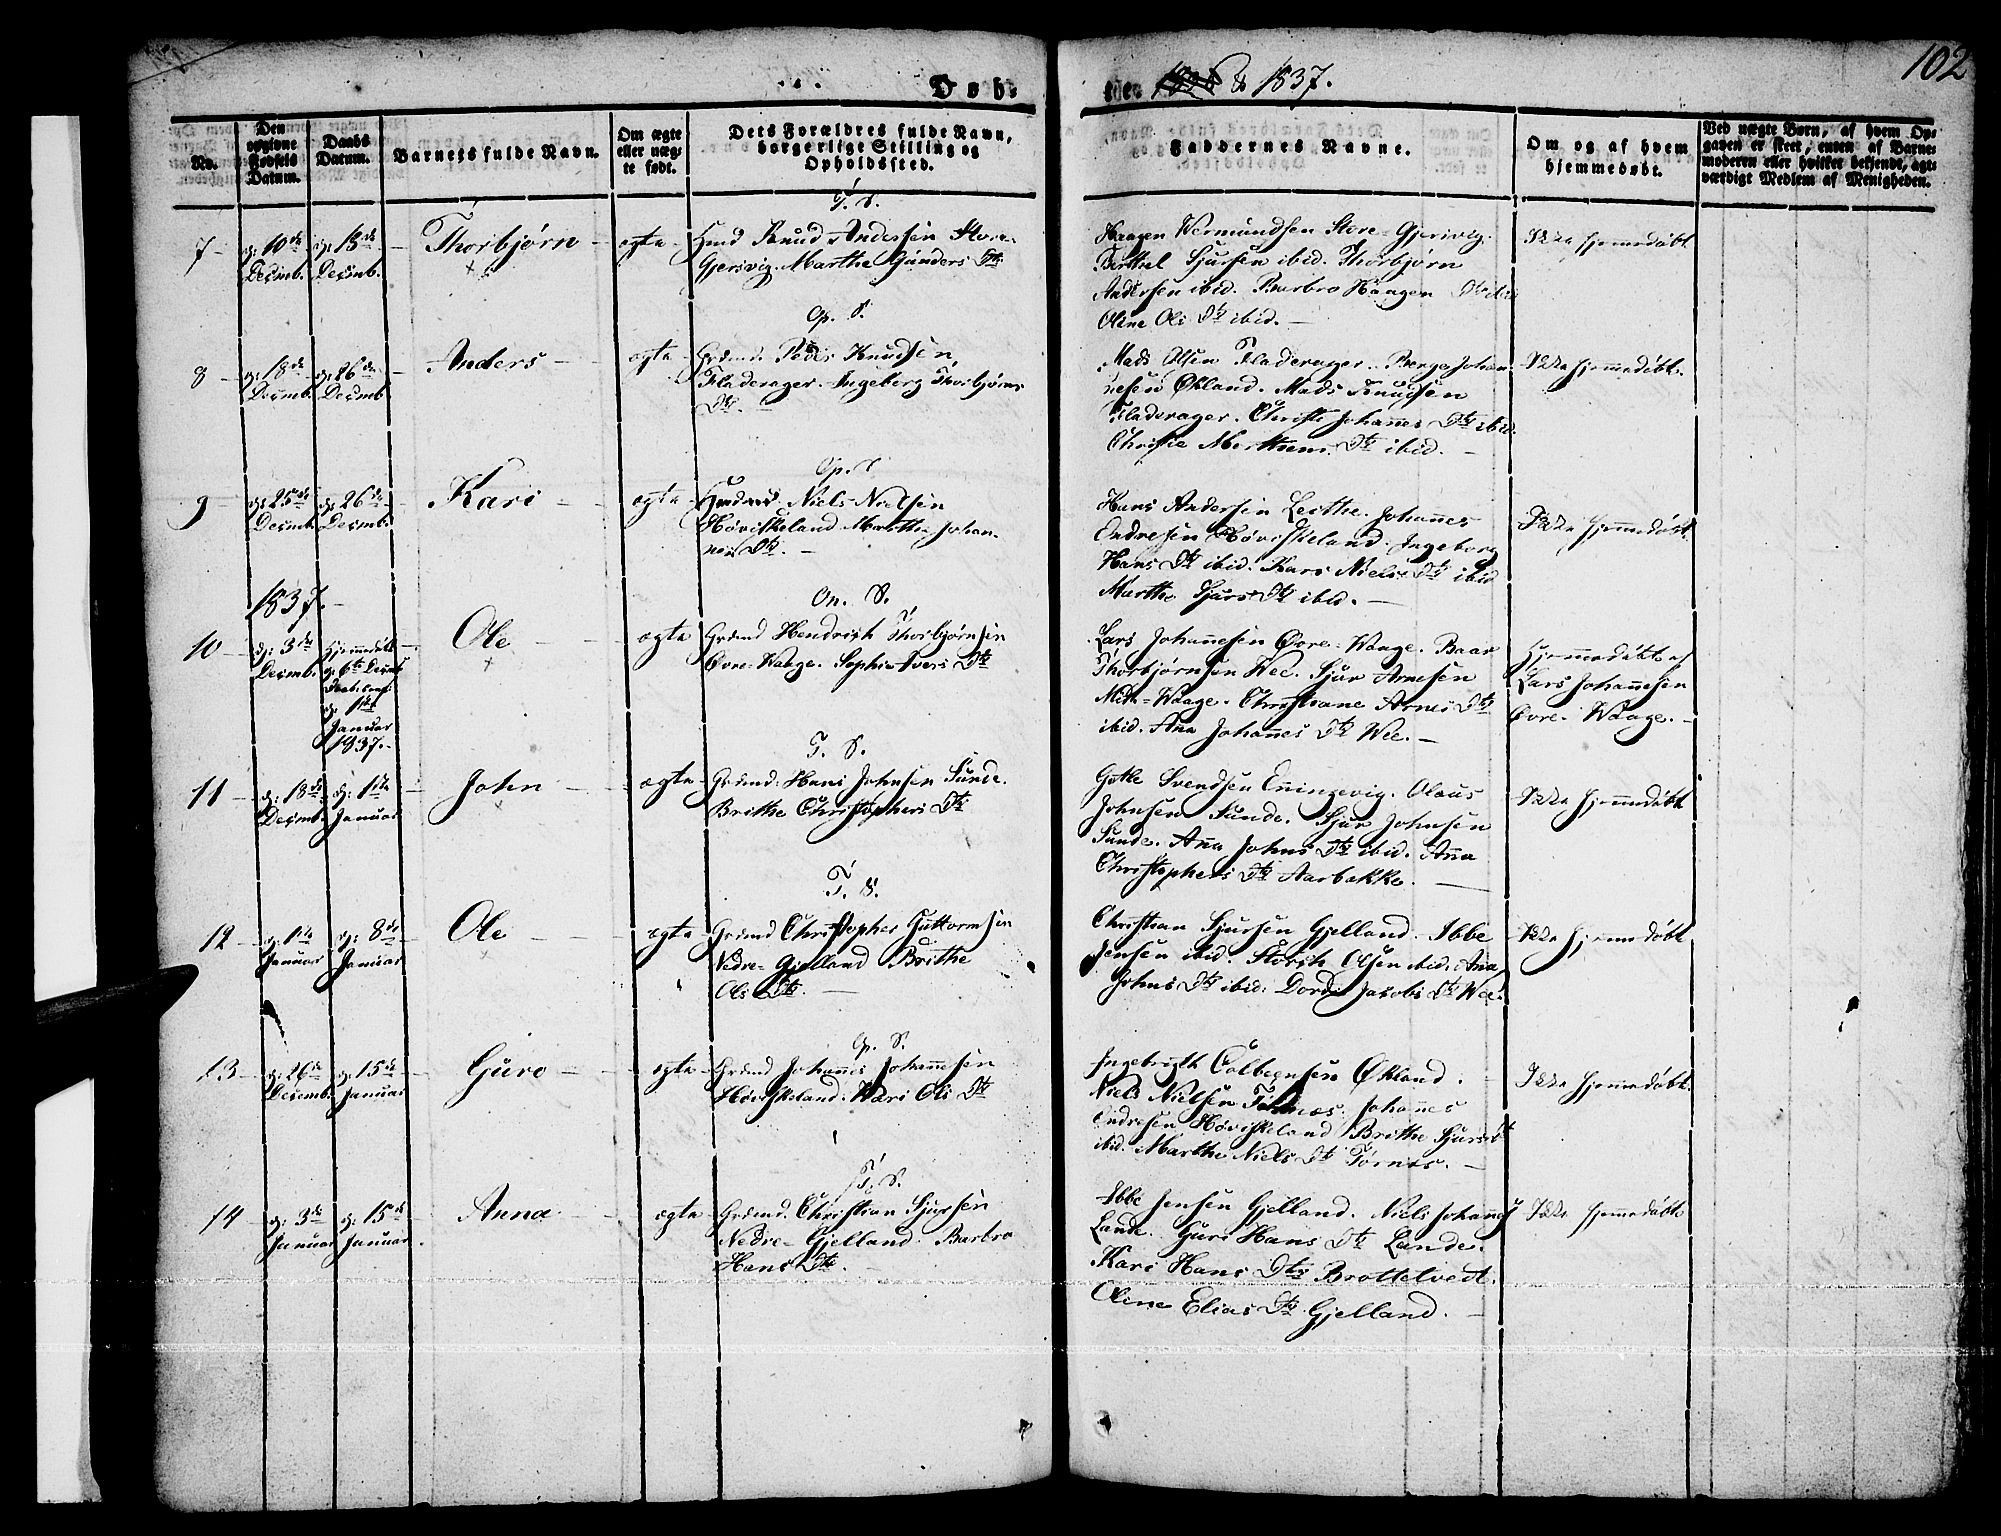 102
Døb-
te. 1836 & 1837.
No.
Den
opgivne
Fødsels
Datum.
Daabs
Datum.
Barnets fulde Navn.
Om ægte
eller uæg-
te født.
Dets Forældres fulde Navn,
borgerlige Stilling og
Opholdssted.
Faddernes Navne.
Om og af hvem
hjemmedøbt.
Ved uægte Børn, af hvem Op-
gaven er skeet, enten af Barne-
moderen eller hvilket bekjendt, agt-
værdigt Medlem af Menigheden.
T. S.
7 - d: 10de Decmb. d: 18de Decmb. Thorbjørn - ægte -
Hmd Knud Andersen Store-
Gjersvig. Marthe Gunders Dtr
Haagen Vermundsen Store-Gjersvig.
Berthel Sjursen ibid. Thorbjørn
Andersen ibid. Barbro Haagen
Oline Ols Dtr ibid. -
Ikke hjemmedøbt
Op. S.
8 - d: 18de Decmb. d: 26de Decmb. Anders - ægte -
Grdmd. Peder Knudsen,
Fladerager. Ingeborg Thorbjørns
Dtr. -
Mads Olsen Fladerager. Berge Johan-
nesen Økland. Mads Knudsen
Fladerager. Christi Johannes Dtr ibid.
Christie Dtr ibid. -
Ikke hjemmedøbt.
Op. S
9 - d: 25de Decmb. d: 26de Decmb. Kari - ægte
Niels Nielsen
Høviskeland Marthe Johan-
nes Dtr. -
Hans Andersen Leethe. Johannes
Endresen Høviskeland. Ingeborg
Hans Dtr ibid. Kari Niels Dtr ibid
Marthe Sjurs Dtr ibid. -
Ikke hjemmedøbt.
1837.-
On. S.
10 - d: 3de Decmb. Hjemmedøbt d: 6te Decmb Daab. conf: d: 1ste Januar 1837.- Ole - ægte
Grdmd Hendrich Thorbjørnsen
Øvre-Waage. Sophie Ivers Dtr
Lars Johannesen Øvre-Waage. Baar
Thorbjørnsen Wee. Sjur Arnesen
Midt-Waage. Christiane Arnes Dtr
ibid. Anna Johannes Dtr Wee. -
Hjemmedøbt af
Lars Johannesen
Øvre-Waage. -
T. S.
11 - d: 18de Decmb. d: 1ste Januar John - ægte -
Grdmd. Hans Johnsen Sunde.
Brithe Christophers Dtr
Gotle Svendsen Enningevig. Olaus
Johnsen Sunde. Sjur Johnsen
Sunde. Anna Johns Dtr ibid. Anna
Christophers Dtr Aarbakke. -
Ikke hjemmedøbt
T. S.
12 - d: 1ste Januar d: 8de Januar Ole - ægte -
Grdmd Christopher Guttormsen
Nedre-Gjelland Brithe
Ols Dtr. -
Christian Sjursen Gjelland. Ibbe
Jensen ibid. Størch Olsen ibid. Ana
Johns Dtr ibid: Jacobs Dtr Wee.
Ikke hjemmedøbt
Op. S.
13 - d: 26de Decemb. d: 15de Januar Guro - ægte -
Grdmd Johannes Johannesen
Høviskeland. Kari Ols Dtr
Ingebrigth Colbeensen Økland.
Niels Nielsen Tørnæs. Johannes
Endresen Høviskeland Brithe Sjurs Dt
ibid. Marthe Niels Dtr Tørnæs. -
Ikke hjemmedøbt.
T. S.
14 - d: 3de Januar d: 15de Januar. Anna - ægte -
Grdmd. Christian Sjursen
Nedre-Gjelland. Barbro
Hans Dtr. -
Ibbe Jensen Gjelland. Niels Johannes
Lande. Guri Hans Dtr Lande.
Kari Hans Dtr Brattetvedt.
Oline Elias Dtr Gjelland. -
Ikke hjemmedøbt